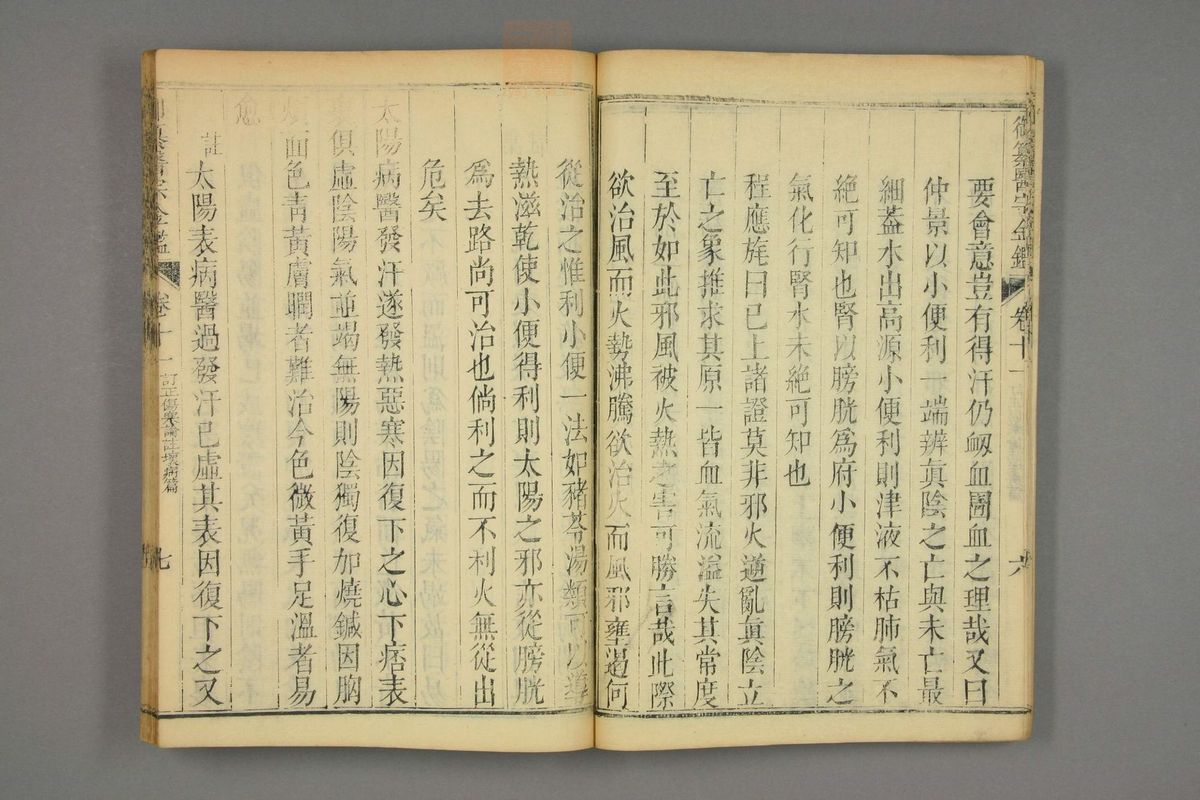 御纂醫宗金鑑 卷十一 六
要會意豈有得汗仍衂血圊血之理哉又曰
仲景以小便利一端辨眞陰之亡與未亡最
細蓋水出高源小便利則津液不枯肺氣不
絶可知也腎以膀胱爲府小便利則膀胱之
氣化行腎水未絶可知也
程應旄曰已上諸證莫非邪火逎亂眞陰立
亡之象推求其原一皆血氣流溢失其常度
至於如此邪風被火熱之害可勝言哉此際
欲治風而火勢沸騰欲治火而風邪壅遏何
從治之惟利小便一法如豬苓湯類可以導
熱滋乾使小便得利則太陽之邪亦從膀胱
爲去路尚可治也倘利之而不利火無從出
危矣
太陽病醫發汗遂發熱惡寒因復下之心下痞表
俱虛陰陽氣並竭無陽則陰獨復加燒鍼因胸
面色靑黃膚瞤者難治今色微黃手足溫者易
愈
註太陽表病醫過發汗已虛其表因復下之又
醫宗金鑑 卷十一 訂正傷寒論註壞病篇 七